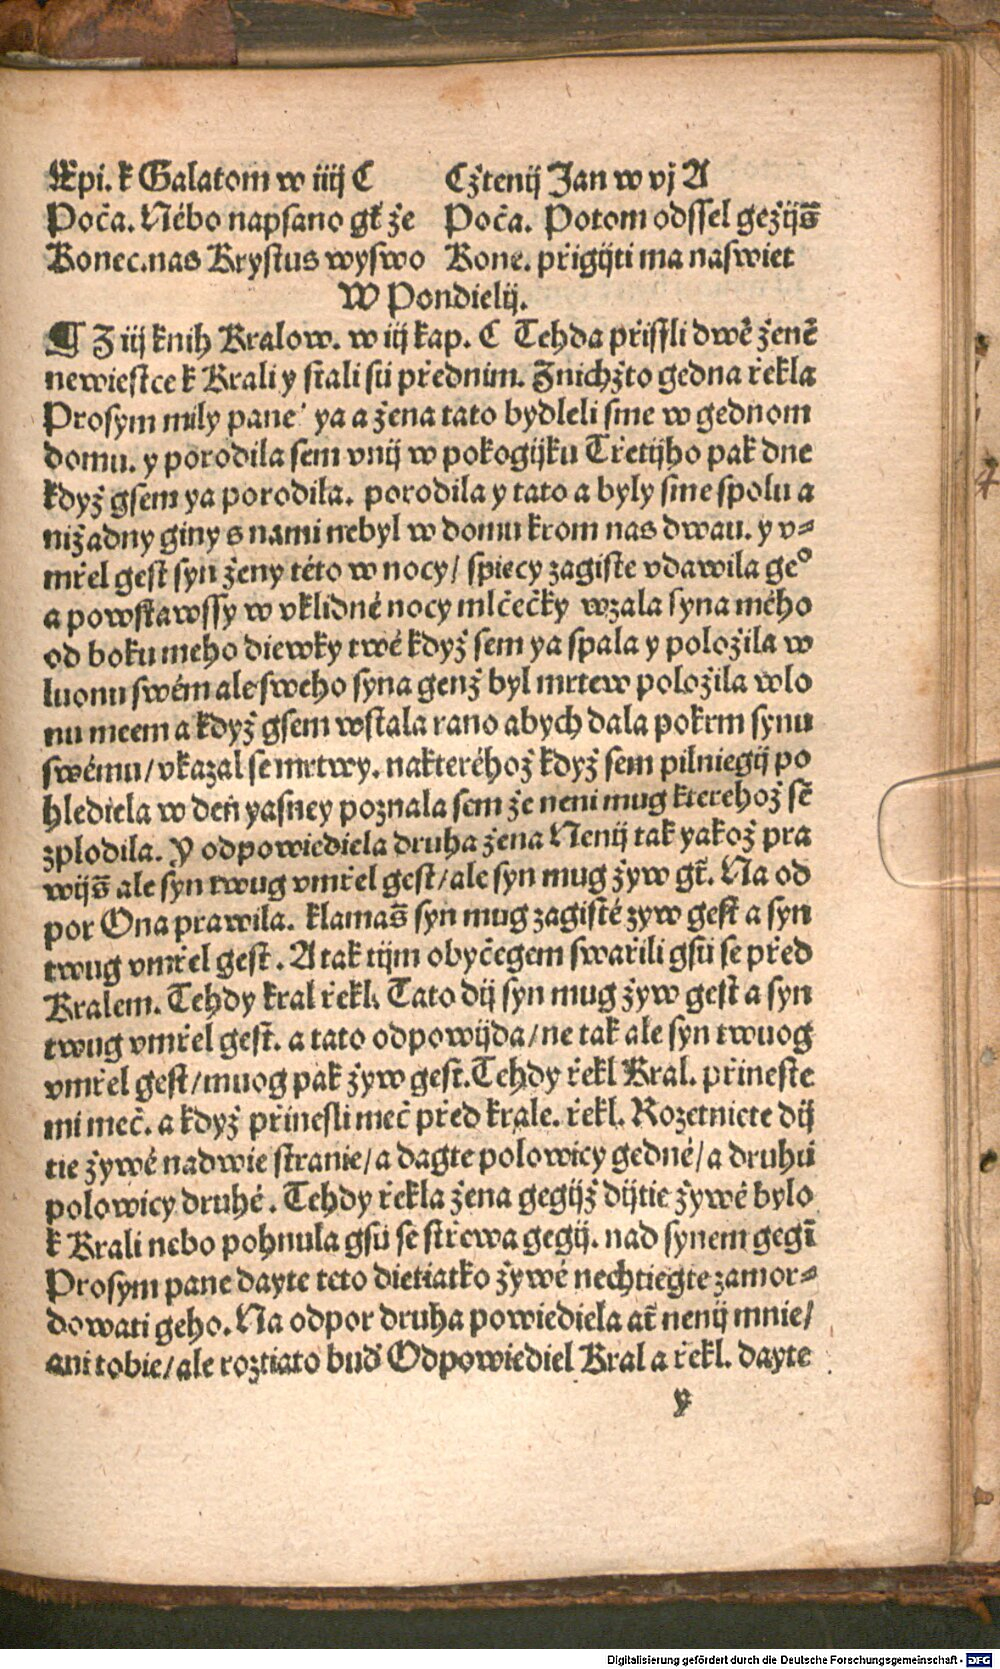 Epi. k Galatom w iiij C
Počа. Nébo napsano gt̄ že
Konec. nas Krystus wyswo
Cžtenij Jan w vj A
Poča. Potom odssel gežijs̄
Kone. přigijti ma naswiet
W Pondielij.
¶ Z iij knih Kralow. w iij kap. C Tehda přissli dwě ženē
newiestce k Krali y stali sú přednim. Znichžto gedna řekla
Prosym mily pane' ya a žena tato bydleli sme w gednom
domu. y porodila sem vnij w pokogijku Třetijho pak dne
když gsem ya porodila. porodila y tato a byly sme spolu a
nižadny giny s nami nebyl w domu krom nas dwau. y v=
mřel gest syn ženy této w nocy/ spiecy zagiste vdawila ge°
a powstawssy w vklidné nocy mlčečky wzala syna mého
od boku meho diewky twé když sem ya spala y položila w
luonu swém ale sweho syna genž byl mrtew položila wlo
nu meem a když gsem wstala rano abych dala pokrm synu
swému/vkazal se mrtwy. nakteréhož když sem pilniegij po
hlediela w deň yasney poznala sem že neni mug kterehož sē
zplodila. Y odpowiediela druha žena Nenij tak yakož pra
wijs̄ ale syn twug vmřel gest/ale syn mug žyw gt̄. Na od
por Ona prawila. klamas̄ syn mug zagisté zyw gest a syn
twug vmřel gest. A tak tijm obyčegem swařili gsú se před
Kralem. Tehdy kral řekl. Tato dij syn mug žyw gest a syn
twug vmřel gest. a tato odpowijda/ne tak ale syn twuog
vmřel gest/muog pak žyw gest. Tehdy řekl Kral. přineste
mi meč. a když přinesli meč před krale. řekl. Rozetniete dij
tie žywé nadwie stranie/a dagte polowicy gedné/a druhú
polowicy druhé. Tehdy řekla žena gegijž dijtie žywé bylo
k Krali nebo pohnula gsú se střewa gegij. nad synem gegī
Prosym pane dayte teto dietiatko žywé nechtiegte zamor=
dowati geho. Na odpor druha powiediela at̄ nenij mnie/
ani tobie/ale roztiato buď Odpowiediel Kral a řekl. dayte
y
Digitalisierung gefördert durch die Deutsche Forschungsgemeinschaft - DFG